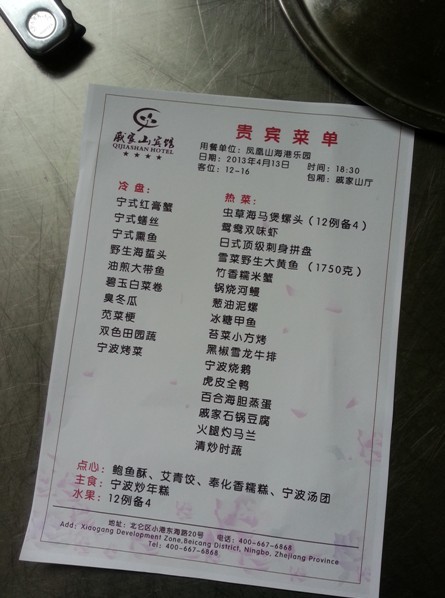 戚家山宾馆
QIJIASHAN HOTEL
贵宾菜单
用餐单位：凤凰山海港乐园
日期：2013年4月13日 时间：18:30
客位：12-16 包厢：戚家山厅
冷盘：
宁式红膏蟹
宁式鳝丝
宁式熏鱼
野生海蜇头
油煎大带鱼
碧玉白菜卷
臭冬瓜
苋菜梗
双色田园蔬
宁波烤菜
热菜：
虫草海马煲螺头（12例备4）
鸳鸯双味虾
日式顶级刺身拼盘
雪菜野生大黄鱼（1750克）
竹香糯米蟹
锅烧河鳗
葱油泥螺
冰糖甲鱼
苔菜小方烤
黑椒雪龙牛排
宁波烧鹅
虎皮全鸭
百合海胆蒸蛋
戚家石锅豆腐
火腿灼马兰
清炒时蔬
点心：鲍鱼酥、艾青饺、奉化香糯糕、宁波汤团
主食：宁波炒年糕
水果：12例备4
地址：北仑区小港东海路20号 电话：400-667-6868
Add: Xiaogang Development Zone,Beicang District, Ningbo, Zhejiang Province
Tel: 400-667-6868